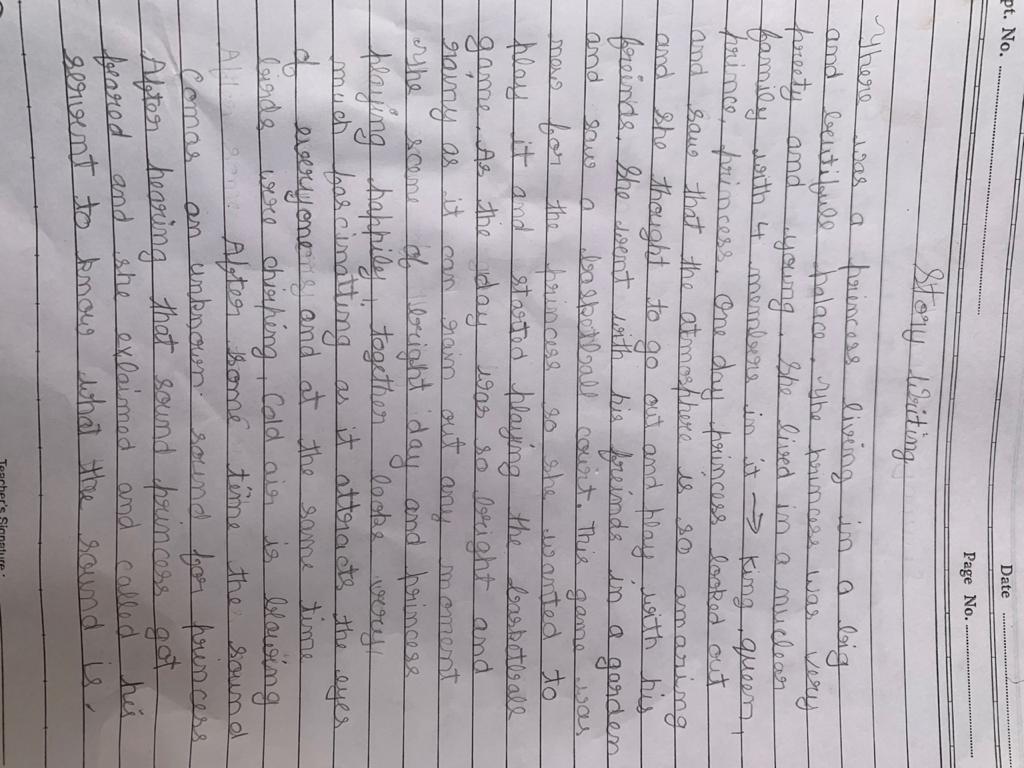 pt. No.
Date
Page No.
Story Writing
There was a princess living in a big
and beutifule phalace. The princess was very
preety and young. She lived in a nuclear
family with 4 members in it → King, queen,
prince, princess. One day princess looked out
and saw that the atmosphere is so amazing
and she thought to go out and play with his
freinds. She went with his freinds in a garden
and saw a basketball court. This game was
new for the princess so she wanted to
play it and started playing the basketball
game. As the day was so bright and
rainy as it can rain out any moment
The scene of bright day and princess
playing happily together looks very
much fascinatting as it attracts the eyes
of everyone and at the same time
birds were chirping, Cold air is blowing
After some time the sound
Comes an unknown sound for princess
After hearing that sound princess got
feared and she explained and called his
servent to know what the sound is.
Teacher's Signature :